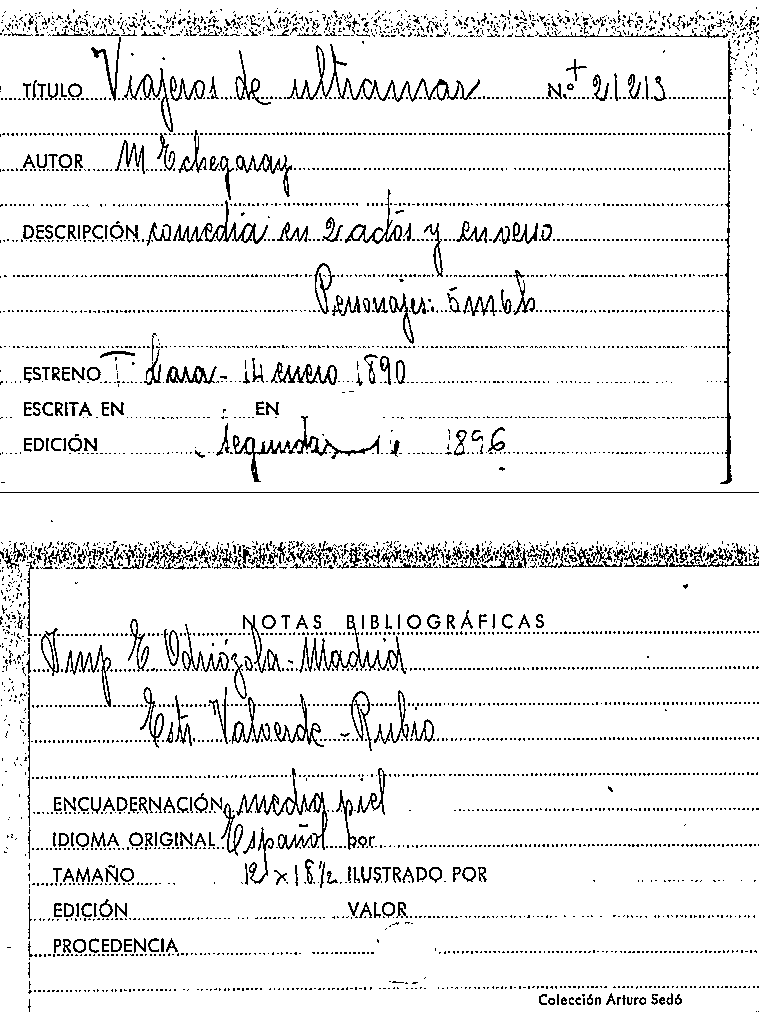 TÍTULO Viajeros de ultramar N.º + 21213
AUTOR M Echegaray
DESCRIPCIÓN comedia en 2 actos y en verso
Personajes: 5 m 6 h
ESTRENO T. Lara - 14 enero 1890
ESCRITA EN EN
EDICIÓN segunda 1896
NOTAS BIBLIOGRÁFICAS
Imp E Odriózola - Madrid
Estr Valverde - Rubio
ENCUADERNACIÓN media piel
IDIOMA ORIGINAL Español por
TAMAÑO 12 x 18 1/2 ILUSTRADO POR
EDICIÓN VALOR
PROCEDENCIA
Colección Arturo Sedó